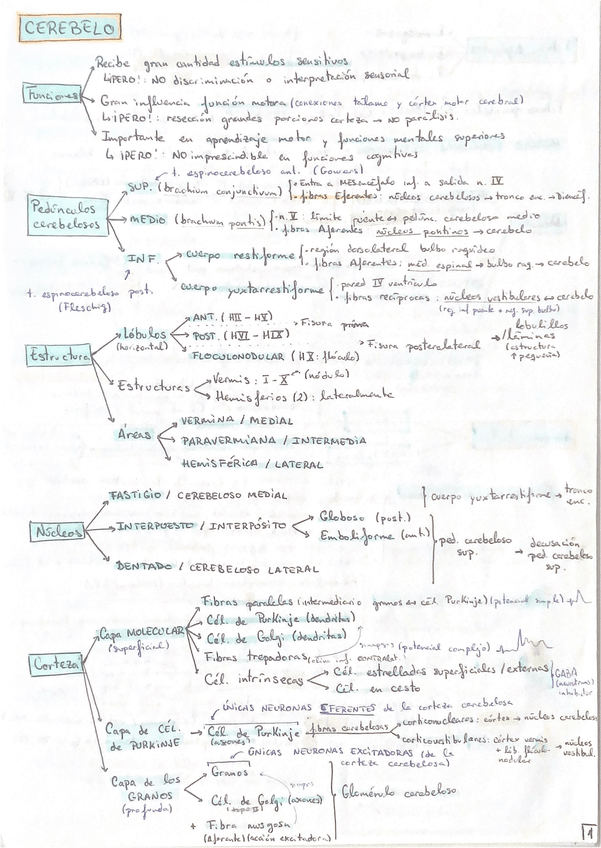 CEREBELO
Funciones
Recibe gran cantidad estímulos sensitivos
↳¡PERO!: NO discriminación o interpretación sensorial
Gran influencia función motora (conexiones tálamo y córtex motor cerebral)
↳¡PERO!: resección grandes porciones corteza → NO parálisis.
Importante en aprendizaje motor y funciones mentales superiores
↳¡PERO!: NO imprescindible en funciones cognitivas
Pedúnculos cerebelosos
t. espinocerebeloso ant. (Gowers)
SUP. (brachium conjunctivum)
· Entra a MESENCÉFALO inf. a salida n. IV
· fibras Eferentes: núcleos cerebelosos → tronco enc. → Diencéf.
MEDIO (brachum pontis)
· n. V: límite puente es pedún. cerebeloso medio
· fibras Aferentes núcleos pontinos → cerebelo
INF.
cuerpo restiforme
· región dorsolateral bulbo raquídeo
· fibras Aferentes: méd. espinal → bulbo raq. → cerebelo
cuerpo yuxtarrestiforme
· pared IV ventrículo
· fibras recíprocas: núcleos vestibulares ↔ cerebelo
(reg. inf puente + reg. sup. bulbo)
t. espinocerebeloso post. (Fleschig)
Estructura
Lóbulos (horizontal)
ANT. (HII - HV)
> Fisura prima
POST. (HVI - HIX)
> Fisura posterolateral
FLOCULONODULAR (HX: flóculo)
→ lobulillos / láminas (estructura + pequeña)
Estructuras
Vermis: I - X (nódulo)
Hemisferios (2): lateralmente
Áreas
VERMINA / MEDIAL
PARAVERMIANA / INTERMEDIA
HEMISFÉRICA / LATERAL
Núcleos
FASTIGIO / CEREBELOSO MEDIAL
cuerpo yuxtarrestiforme → tronco enc.
INTERPUESTO / INTERPÓSITO
Globoso (post.)
Emboliforme (ant.)
DENTADO / CEREBELOSO LATERAL
ped. cerebeloso sup. → decusación ped. cerebeloso sup.
Corteza
Capa MOLECULAR (superficial)
Fibras paralelas (intermediario granos en cél. Purkinje) (potencial simple)
Cél. de Purkinje (dendritas)
Cél. de Golgi (dendritas)
Fibras trepadoras (olivo inf. CONTRALAT.)
sinapsis (potencial complejo)
Cél. intrínsecas
Cél. estrelladas superficiales / externas
Cél. en cesto
GABA
Capa de CÉL. DE PURKINJE
ÚNICAS NEURONAS EFERENTES de la corteza cerebelosa
Cél. de Purkinje (axones)
fibras cerebelosas
corticonucleares: córtex → núcleos cerebelosos
corticovestibulares: córtex vermis + lób. flóculo-nodular → núcleos vestibul.
Capa de los GRANOS (profunda)
ÚNICAS NEURONAS EXCITADORAS (de la corteza cerebelosa)
Granos
sinapsis
Cél. de Golgi (axones)
(tipo II)
+ Fibra musgosa
(Aferente) (acción excitadora)
Glomérulo cerebeloso
1